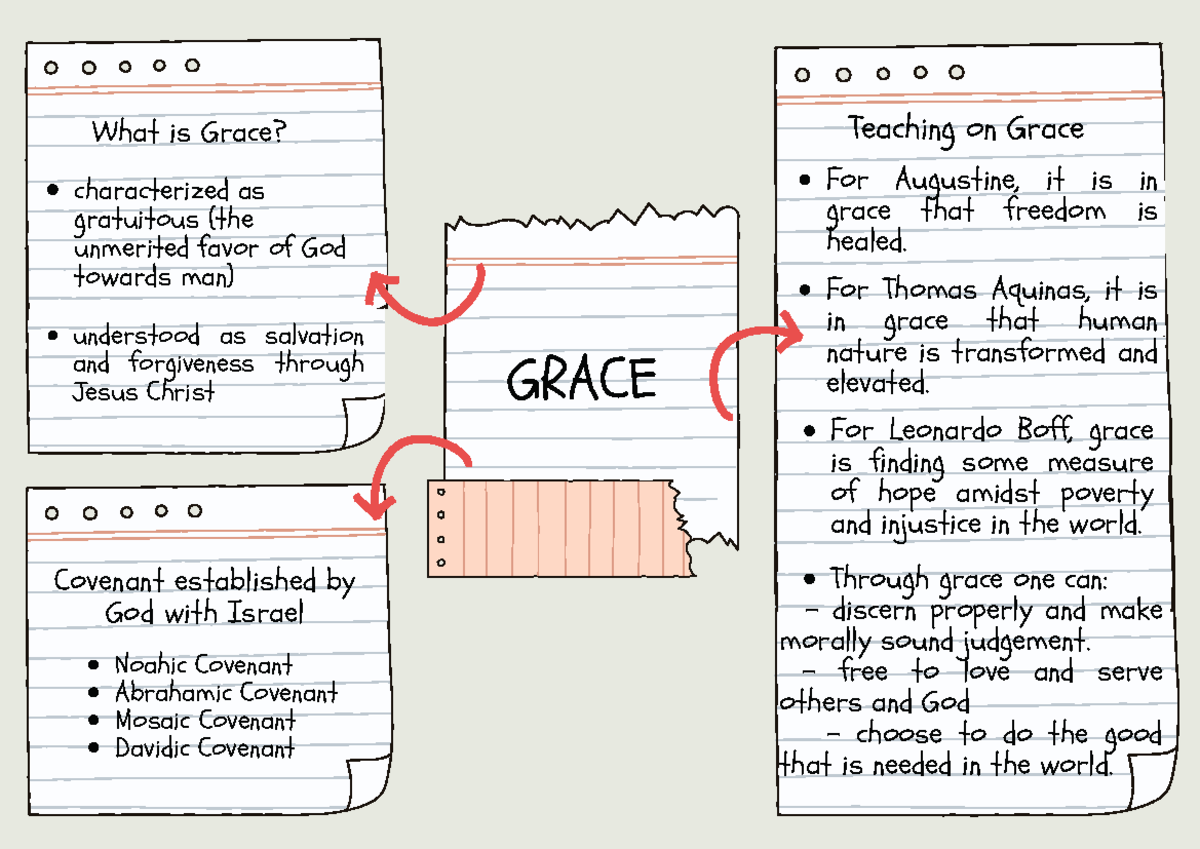 What is Grace?
• characterized as
gratuitous (the
unmerited favor of God
towards man)
• understood as salvation
and forgiveness through
Jesus Christ
Covenant established by
God with Israel
• Noahic Covenant
• Abrahamic Covenant
• Mosaic Covenant
• Davidic Covenant
GRACE
Teaching on Grace
• For Augustine, it is in
grace that freedom is
healed.
• For Thomas Aquinas, it is
in grace that human
nature is transformed and
elevated.
• For Leonardo Boff, grace
is finding some measure
of hope amidst poverty
and injustice in the world.
• Through grace one can:
- discern properly and make
morally sound judgement.
- free to love and serve
others and God
- choose to do the good
that is needed in the world.